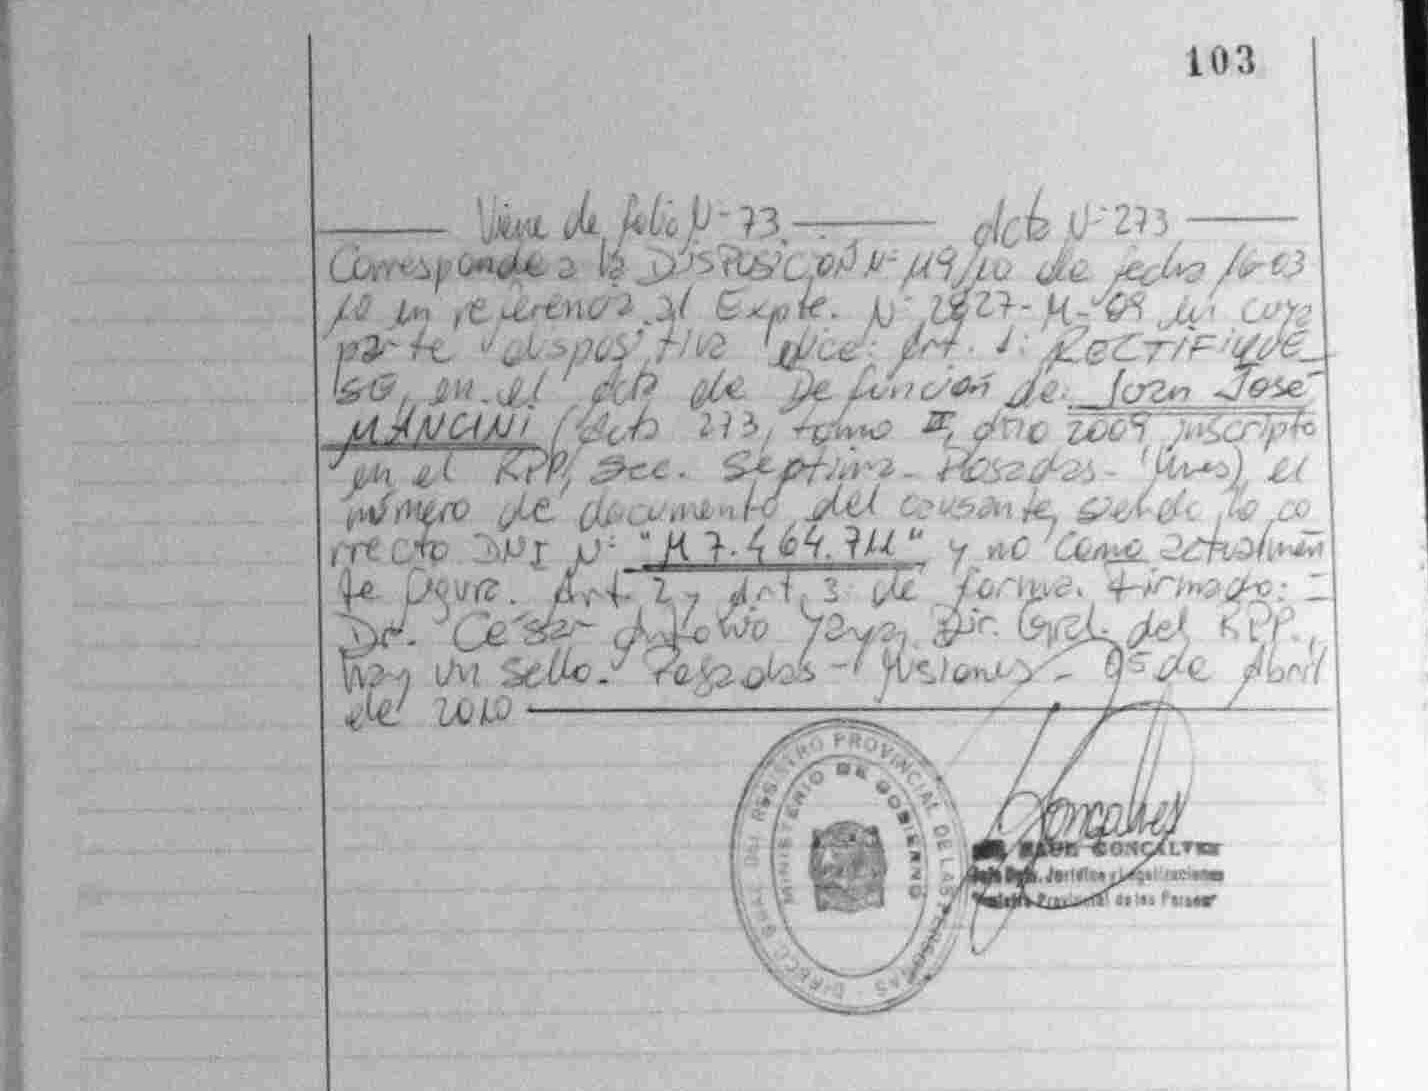 103
Viene de folio Nº 73 acta Nº 273
Corresponde a la DISPOSICIÓN Nº 119/10 de fecha 16-03
10 en referencia al Expte. Nº 2827-M-09 en cuya
parte dispositiva dice: Art. 1: RECTIFIQUE
SE, en el acta de Defunción de: Juan José
MANCINI (acta 273, tomo II, año 2009 inscripto
en el RPP, Sec. Septima - Posadas - Mnes), el
número de documento del causante, siendo lo co
rrecto DNI Nº "M 7.464.711" y no como actualmen
te figura. Art. 2 y Art. 3: de forma. Firmado: =
Dr. César Antonio Yaya, Dir. Gral. del RPP.,
hay un sello. Posadas - Misiones - 05 de Abril
de 2010
DIRECC. GRAL. DEL REGISTRO PROVINCIAL DE LAS PERSONAS
MINISTERIO DE GOBIERNO
Goncalves
GONCALVES
Jurídica y Legalizaciones
Provincial de las Person